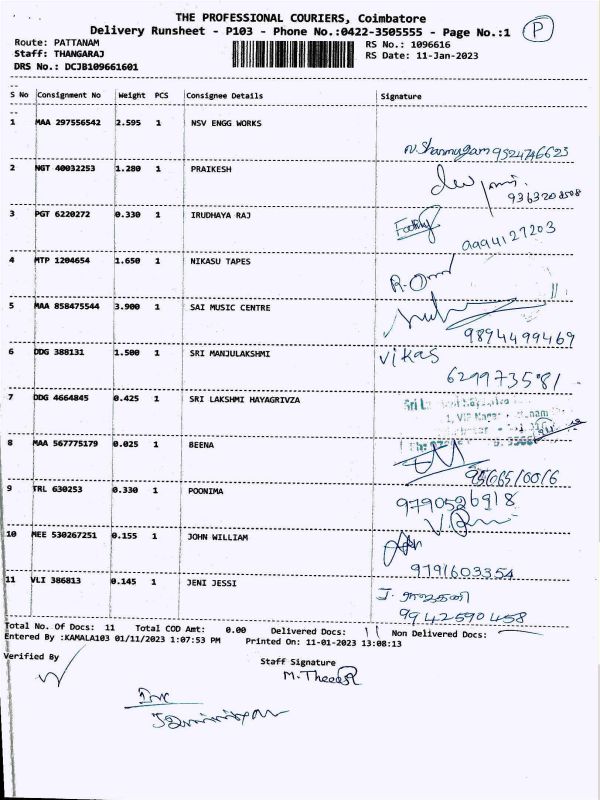 THE PROFESSIONAL COURIERS, Coimbatore
Delivery Runsheet - P103 - Phone No.:0422-3505555 - Page No.:1
P
Route: PATTANAM
RS No.: 1096616
Staff: THANGARAJ
RS Date: 11-Jan-2023
DRS No.: DCJB109661601
S No Consignment No Weight PCS Consignee Details Signature
1 MAA 297556542 2.595 1 NSV ENGG WORKS
N. Shanmugam 9524746623
2 NGT 40032253 1.280 1 PRAIKESH
9363208508
3 PGT 6220272 0.330 1 IRUDHAYA RAJ
9994127203
4 MTP 1204654 1.650 1 NIKASU TAPES
5 MAA 858475544 3.900 1 SAI MUSIC CENTRE
9894499469
6 DDG 388131 1.500 1 SRI MANJULAKSHMI
Vikas
6299735981
7 DDG 4664845 0.425 1 SRI LAKSHMI HAYAGRIVZA
8 MAA 567775179 0.025 1 BEENA
9566510016
9 TRL 630253 0.330 1 POONIMA
9790526918
10 MEE 530267251 0.155 1 JOHN WILLIAM
9791603354
11 VLI 386813 0.145 1 JENI JESSI
9942590458
Total No. Of Docs: 11 Total COD Amt: 0.00 Delivered Docs: 11 Non Delivered Docs:
Entered By :KAMALA103 01/11/2023 1:07:53 PM Printed On: 11-01-2023 13:08:13
Verified By
Staff Signature